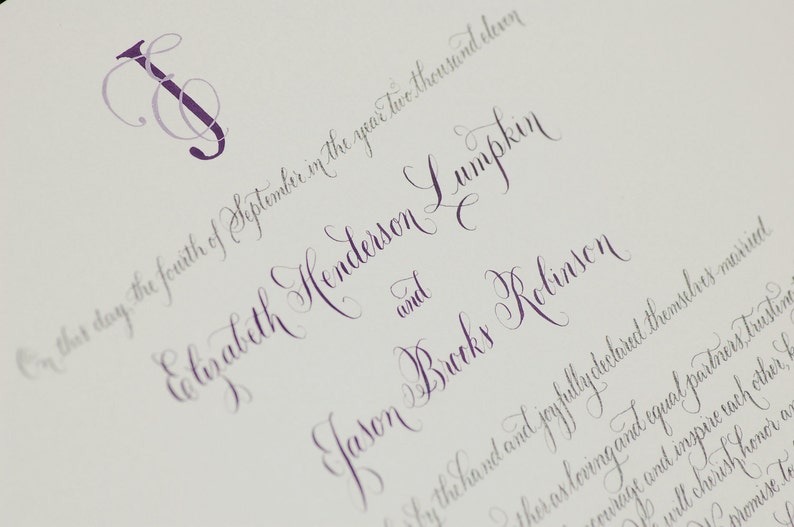 EJ
On this day, the fourth of September in the year two thousand eleven
Elizabeth Henderson Lumpkin
and
Jason Brooks Robinson
by the hand and joyfully declared themselves married
as loving and equal partners, trusting
encourage and inspire each other,
will cherish, honor
promise to